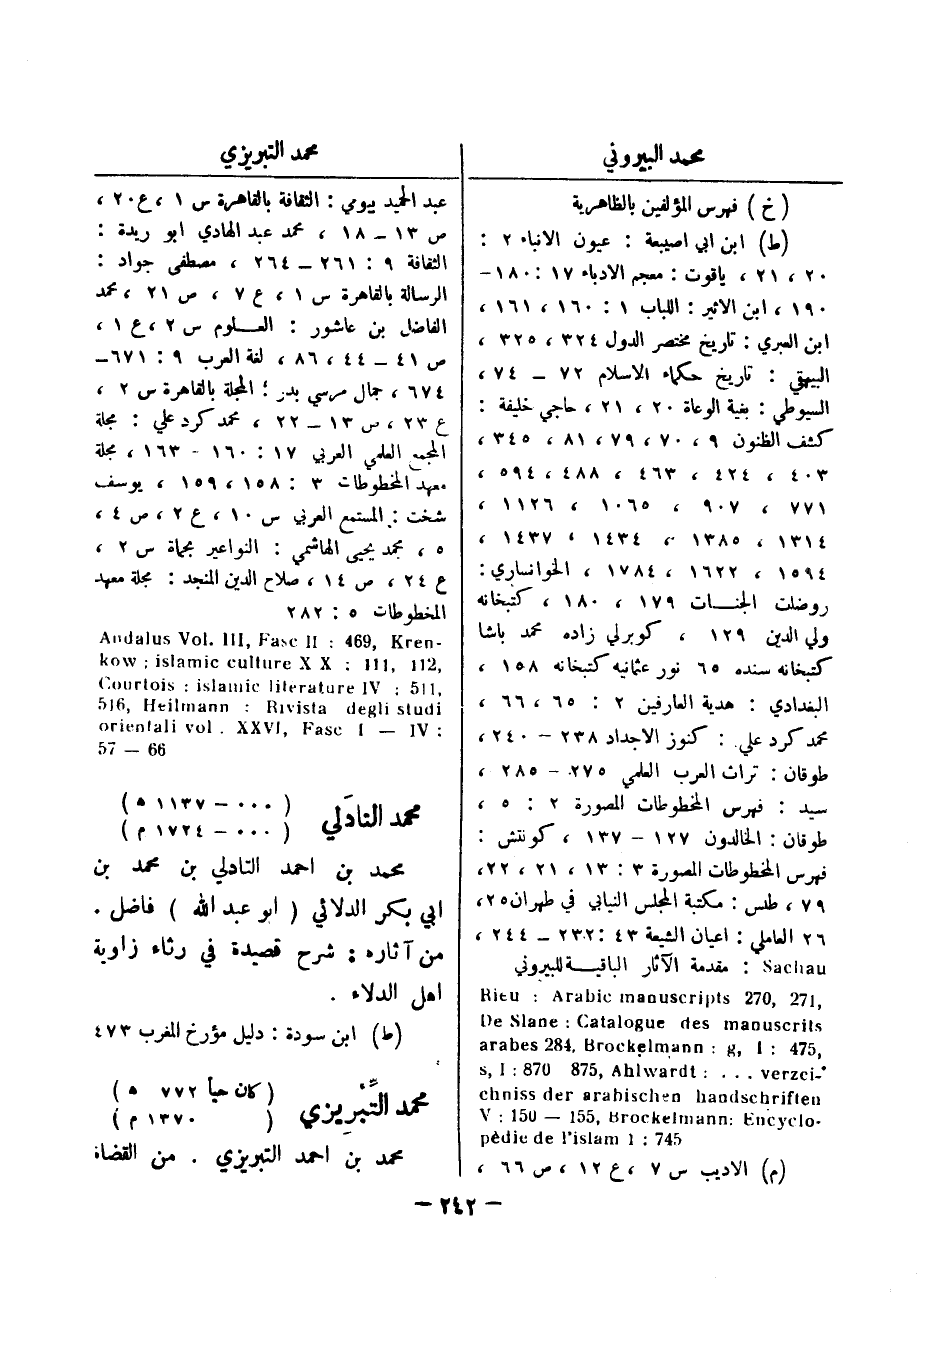 محمد البيروني
(خ) فهرس المؤلفين بالظاهرية
(ط) ابن ابي اصيبعة : عيون الانباء ٢ :
٢٠ ، ٢١ ، ياقوت : معجم الادباء ١٧ : ١٨٠-
١٩٠ ، ابن الاثير : اللباب ١ : ١٦٠ ، ١٦١ ،
ابن العبري : تاريخ مختصر الدول ٣٢٤ ، ٣٢٥ ،
البيهقي : تاريخ حكماء الاسلام ٧٢ – ٧٤ ،
السيوطي : بغية الوعاة ٢٠ ، ٢١ ، حاجي خليفة :
كشف الظنون ٩ ، ٧٠ ، ٧٩ ، ٨١ ، ٣٤٥ ،
٤٠٣ ، ٤٢٤ ، ٤٦٣ ، ٤٨٨ ، ٥٩٤ ،
٧٧١ ، ٩٠٧ ، ١٠٦٥ ، ١١٢٦ ،
١٣١٤ ، ١٣٨٥ ، ١٤٣٤ ، ١٤٣٧ ،
١٥٩٤ ، ١٦٢٢ ، ١٧٨٤ ، الخوانساري :
روضات الجنــات ١٧٩ ، ١٨٠ ، كتبخانه
ولي الدين ١٢٩ ، كوبرلي زاده محمد باشا
كتبخانه سنده ٦٥ نور عثمانيه كتبخانه ١٥٨ ،
البغدادي : هدية العارفين ٢ : ٦٥ ، ٦٦ ،
محمد كرد علي : كنوز الاجداد ٢٣٨ – ٢٤٠ ،
طوقان : تراث العرب العلمي ٢٧٥ – ٢٨٥ ،
سيد : فهرس المخطوطات المصورة ٢ : ٥ ،
طوقان : الخالدون ١٢٧ – ١٣٧ ، كونتش :
فهرس المخطوطات المصورة ٣ : ١٣ ، ٢١ ، ٢٢ ،
٧٩ ، طلس : مكتبة المجلس النيابي في طهران ٢٥ ،
٢٦ العاملي : اعيان الشيعة ٤٣ : ٢٣٢ – ٢٤٤ ،
Sachau : مقدمة الآثار الباقيــة للبيروني
Rieu : Arabic manuscripts 270, 271,
De Slane : Catalogue des manuscrits
arabes 284, Brockelmann : g, I : 475,
s, I : 870 875, Ahlwardt : ... verzei-
chniss der arabischen handschriften
V : 150 — 155, Brockelmann: Encyclo-
pédie de l'islam 1 : 745
(م) الاديب س ٧ ، ع ١٢ ، ص ٦٦ ،
محمد التبريزي
عبد الحميد بيومي : الثقافة بالقاهرة س ١ ، ع ٢٠ ،
ص ١٣ – ١٨ ، محمد عبد الهادي ابو ريدة :
الثقافة ٩ : ٢٦١ – ٢٦٤ ، مصطفى جواد :
الرسالة بالقاهرة س ١ ، ع ٧ ، ص ٢١ ، محمد
الفاضل بن عاشور : العــلوم س ٢ ، ع ١ ،
ص ٤١ – ٤٤ ، ٨٦ ، لغة العرب ٩ : ٦٧١–
٦٧٤ ، جمال مرسي بدر : المجلة بالقاهرة س ٢ ،
ع ٢٣ ، ص ١٣ – ٢٢ ، محمد كرد علي : مجلة
المجمع العلمي العربي ١٧ : ١٦٠ - ١٦٣ ، مجلة
معهد المخطوطات ٣ : ١٥٨ ، ١٥٩ ، يوسف
شخت : المستمع العربي س ١٠ ، ع ٢ ، ص ٤ ،
٥ ، محمد يحيى الهاشمي : النواعير بحماة س ٢ ،
ع ٢٤ ، ص ١٤ ، صلاح الدين المنجد : مجلة معهد
المخطوطات ٥ : ٢٨٢
Andalus Vol. III, Fasc II : 469, Kren-
kow : islamic culture X X : 111, 112,
Courtois : islamic literature IV : 511,
516, Heilmann : Rivista degli studi
orientali vol . XXVI, Fasc I — IV :
57 — 66
محمد التادلي ( ٠٠٠ – ١١٣٧ ه )
( ٠٠٠ – ١٧٢٤ م )
محمد بن احمد التادلي بن محمد بن
ابي بكر الدلائي ( ابو عبد الله ) فاضل .
من آثاره : شرح قصيدة في رثاء زاوية
اهل الدلاء .
(ط) ابن سودة : دليل مؤرخ المغرب ٤٧٣
محمد التَّبريزي ( كان حياً ٧٧٢ ه )
( ١٣٧٠ م )
محمد بن احمد التبريزي . من القضاة
– ٢٤٢ –